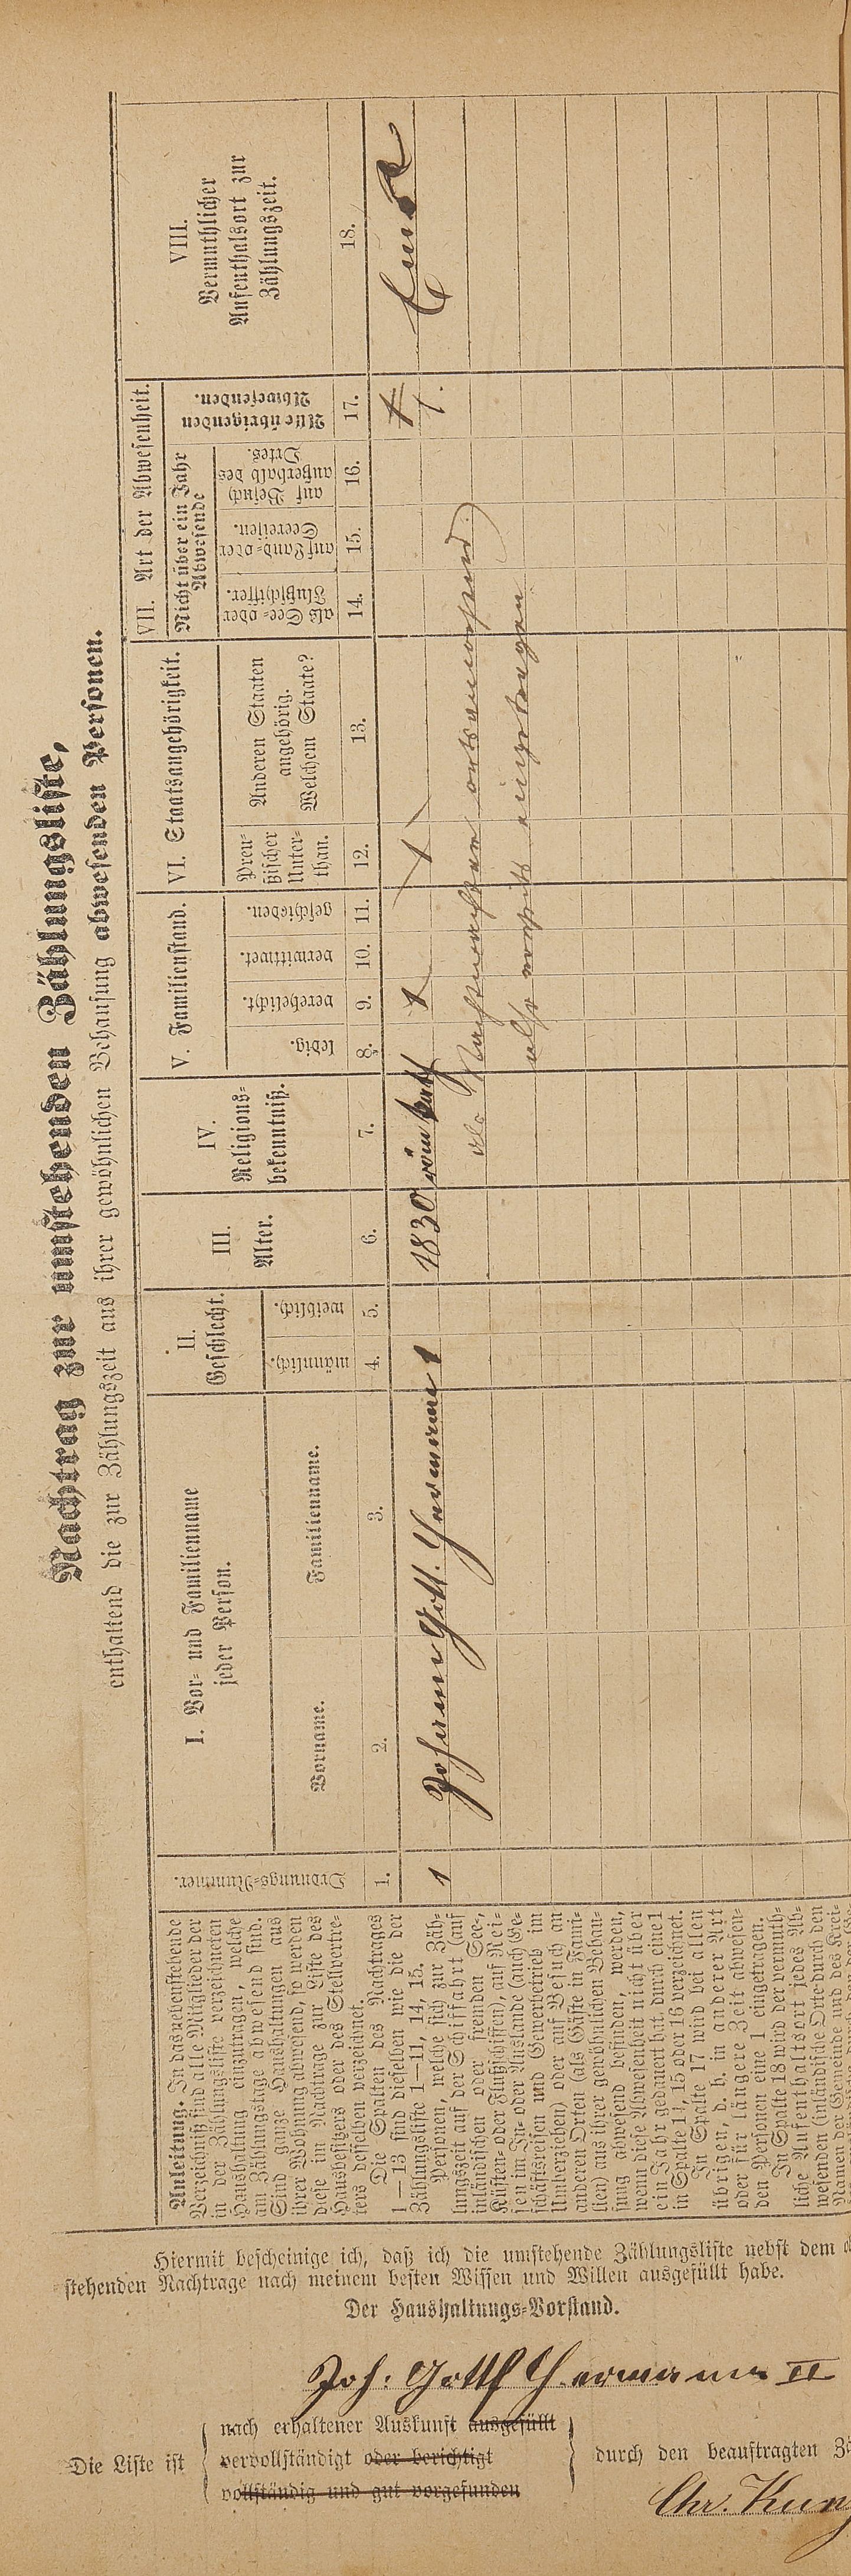 Nachtrag zur umstehenden Zählungsliste,
enthaltend die zur Zählungszeit aus ihrer gewöhnlichen Behausung abwesenden Personen.
Anleitung. In das nebenstehende
Verzeichniß sind alle Mitglieder der
in der Zählungsliste verzeichneten
Haushaltung einzutragen, welche
am Zählungstage abwesend sind.
Sind ganze Haushaltungen aus
ihrer Wohnung abwesend, so werden
diese im Nachtrage zur Liste des
Hausbesitzers oder des Stellvertre-
ters desselben verzeichnet.
Die Spalten des Nachtrages
1—13 sind dieselben wie die der
Zählungsliste 1—11, 14, 15.
Personen, welche sich zur Zäh-
lungszeit auf der Schifffahrt (auf
inländischen oder fremden See-,
Küsten- oder Flußschiffen), auf Rei-
sen im In- oder Auslande (auch Ge-
schäftsreisen und Gewerbetrieb im
Umherziehen) oder auf Besuch an
anderen Orten (als Gäste in Fami-
lien) aus ihrer gewöhnlichen Behau-
sung abwesend befinden, werden,
wenn diese Abwesenheit nicht über
ein Jahr gedauert hat, durch eine 1
in Spalte 14, 15 oder 16 verzeichnet.
In Spalte 17 wird bei allen
übrigen, d. h. in anderer Art
oder für längere Zeit abwesen-
den Personen eine 1 eingetragen.
In Spalte 18 wird der vermuth-
liche Aufenthaltsort jedes Ab-
wesenden (inländische Orte durch den
Namen der Gemeinde und des Krei-
Ordnungs-Nummer.
I. Vor- und Familienname
jeder Person.
Vorname.
Familienname.
II.
Geschlecht.
männlich.
weiblich.
III.
Alter.
IV.
Religions-
bekenntniß.
V. Familienstand.
ledig.
verehelicht.
verwittwet.
geschieden.
VI. Staatsangehörigkeit.
Preu-
ßischer
Unter-
than.
Anderen Staaten
angehörig.
Welchem Staate?
VII. Art der Abwesenheit.
Nicht über ein Jahr
Abwesende
als See- oder
Flußschiffer.
auf Land- oder
Seereisen.
auf Besuch
außerhalb des
Ortes.
Alle übrigen
Abwesenden.
VIII.
Vermuthlicher
Aufenthalsort zur
Zählungszeit.
1. 2. 3. 4. 5. 6. 7. 8. 9. 10. 11. 12. 13. 14. 15. 16. 17. 18.
1 Johann Gott. Hermann 1 1830 röm kath 1 1 1 Ems
als Nachtwächter ortsanwesend
also umseits eingetragen
1.
Hiermit bescheinige ich, daß ich die umstehende Zählungsliste nebst dem
stehenden Nachtrage nach meinem besten Wissen und Willen ausgefüllt habe.
Der Haushaltungs-Vorstand.
Joh: Gottf Hermann II
Die Liste ist
nach erhaltener Auskunft ausgefüllt
vervollständigt oder berichtigt
vollständig und gut vorgefunden
durch den beauftragten
Chr.